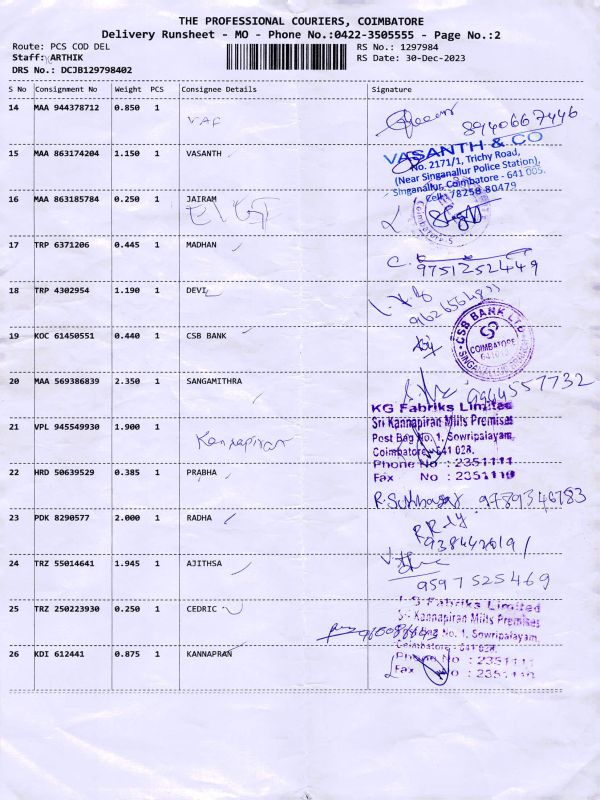 THE PROFESSIONAL COURIERS, COIMBATORE
Delivery Runsheet - MO - Phone No.:0422-3505555 - Page No.:2
Route: PCS COD DEL RS No.: 1297984
Staff: ARTHIK RS Date: 30-Dec-2023
DRS No.: DCJB129798402
S No Consignment No Weight PCS Consignee Details Signature
14 MAA 944378712 0.850 1
8940667446
15 MAA 863174204 1.150 1 VASANTH
VASANTH & CO
No. 2171/1, Trichy Road,
(Near Singanallur Police Station),
Singanallur, Coimbatore - 641 005.
Cell: 78258 80479
16 MAA 863185784 0.250 1 JAIRAM
17 TRP 6371206 0.445 1 MADHAN
9751252449
18 TRP 4302954 1.190 1 DEVI
19 KOC 61450551 0.440 1 CSB BANK
CSB BANK LTD
COIMBATORE
20 MAA 569386839 2.350 1 SANGAMITHRA
9944557732
KG Fabriks Limited
Sri Kannapiran Mills Premises
Post Bag No. 1, Sowripalayam,
Coimbatore - 641 028.
Phone No : 2351111
Fax No : 2351110
21 VPL 945549930 1.900 1 Kannapiran
22 HRD 50639529 0.385 1 PRABHA
9789346783
23 PDK 8290577 2.000 1 RADHA
24 TRZ 55014641 1.945 1 AJITHSA
9597525469
25 TRZ 250223930 0.250 1 CEDRIC
Fabriks Limited
Sri Kannapiran Mills Premises
Bag No. 1, Sowripalayam,
Coimbatore - 641 028.
Phone No : 2351111
Fax No : 2351110
26 KDI 612441 0.875 1 KANNAPRAN